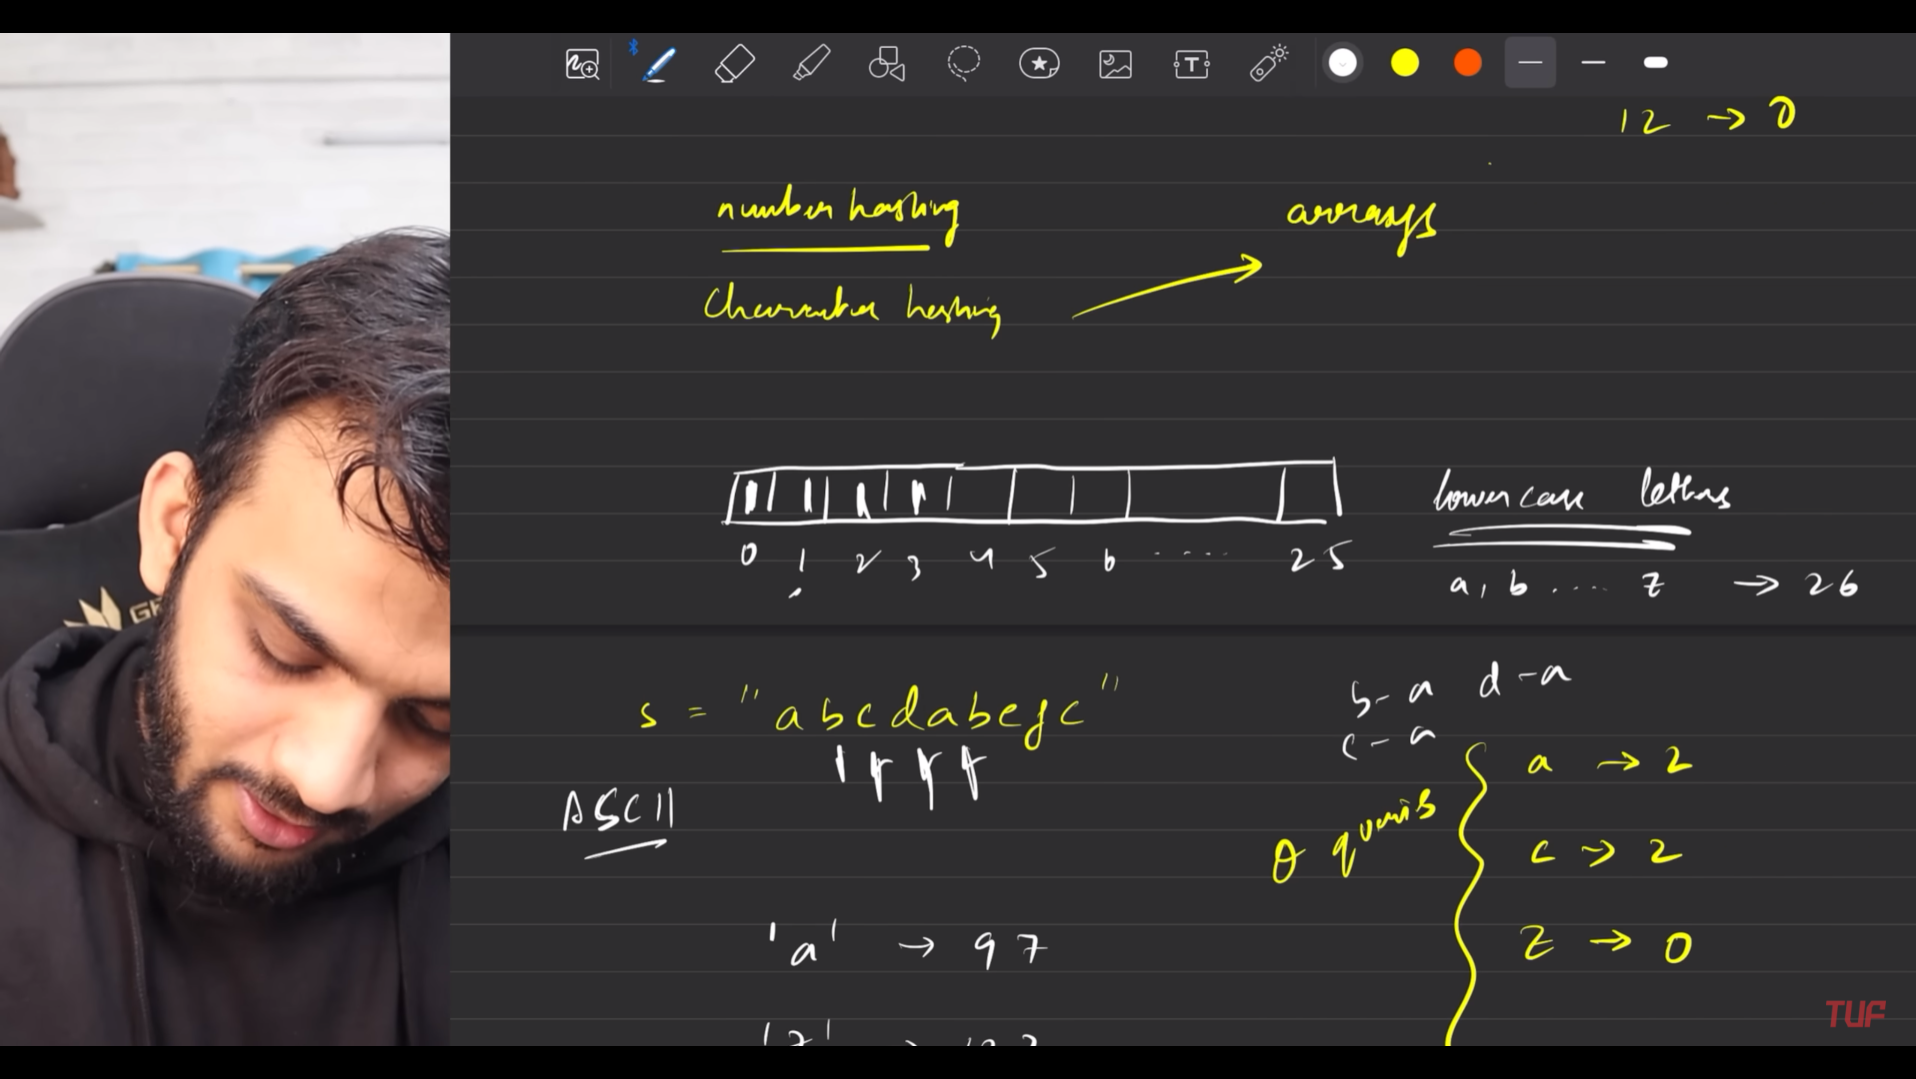 12 → 0
number hashing
arrays
Character hashing
0 1 2 3 4 5 6 ..... 25
lowercase letters
a, b .... z → 26
s = "abcdabefc"
b-a d-a
c-a
a → 2
ASCII
θ queries
c → 2
z → 0
'a' → 97
TUF